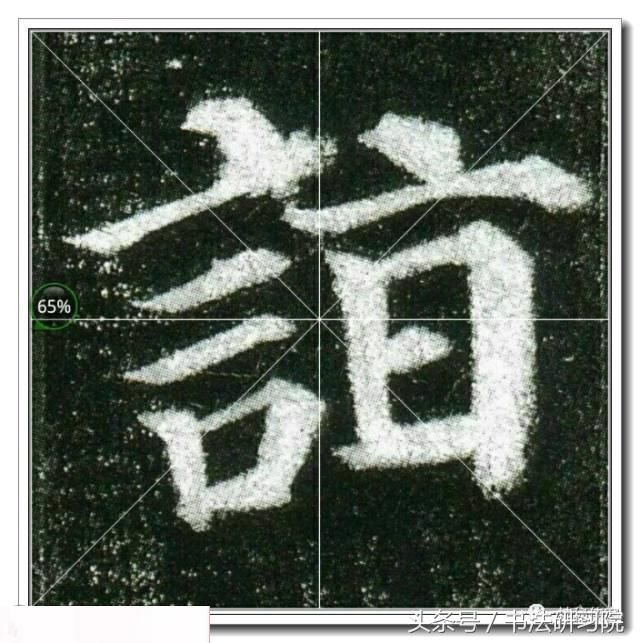 65%
詣
头条号 / 书法研习院